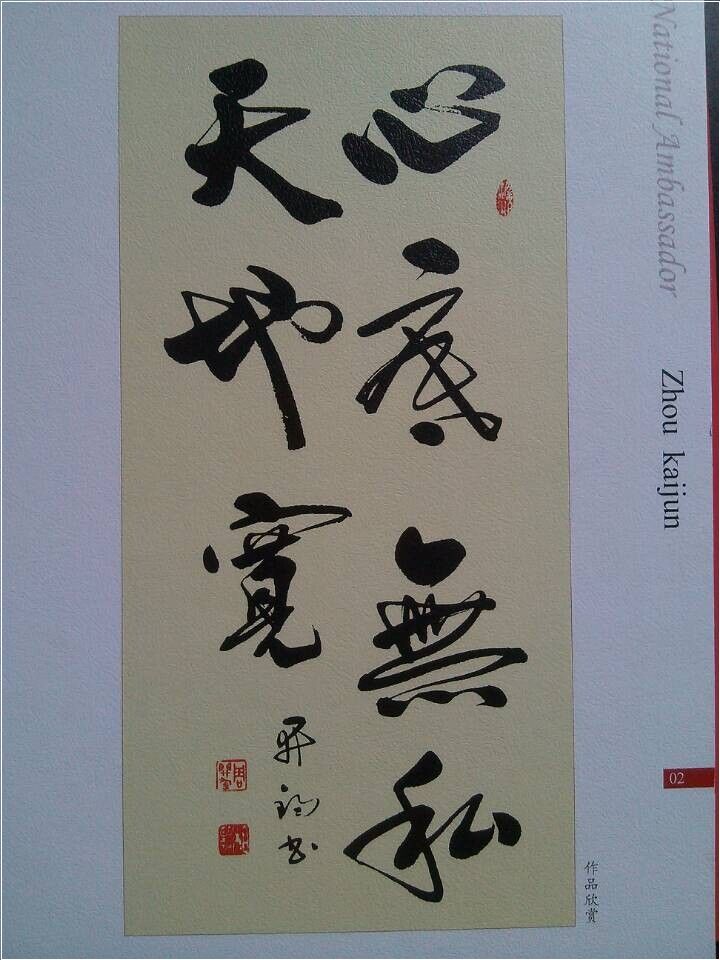 心底無私
天地寬
开鈞书
National Ambassador
Zhou kaijun
02
作品欣赏